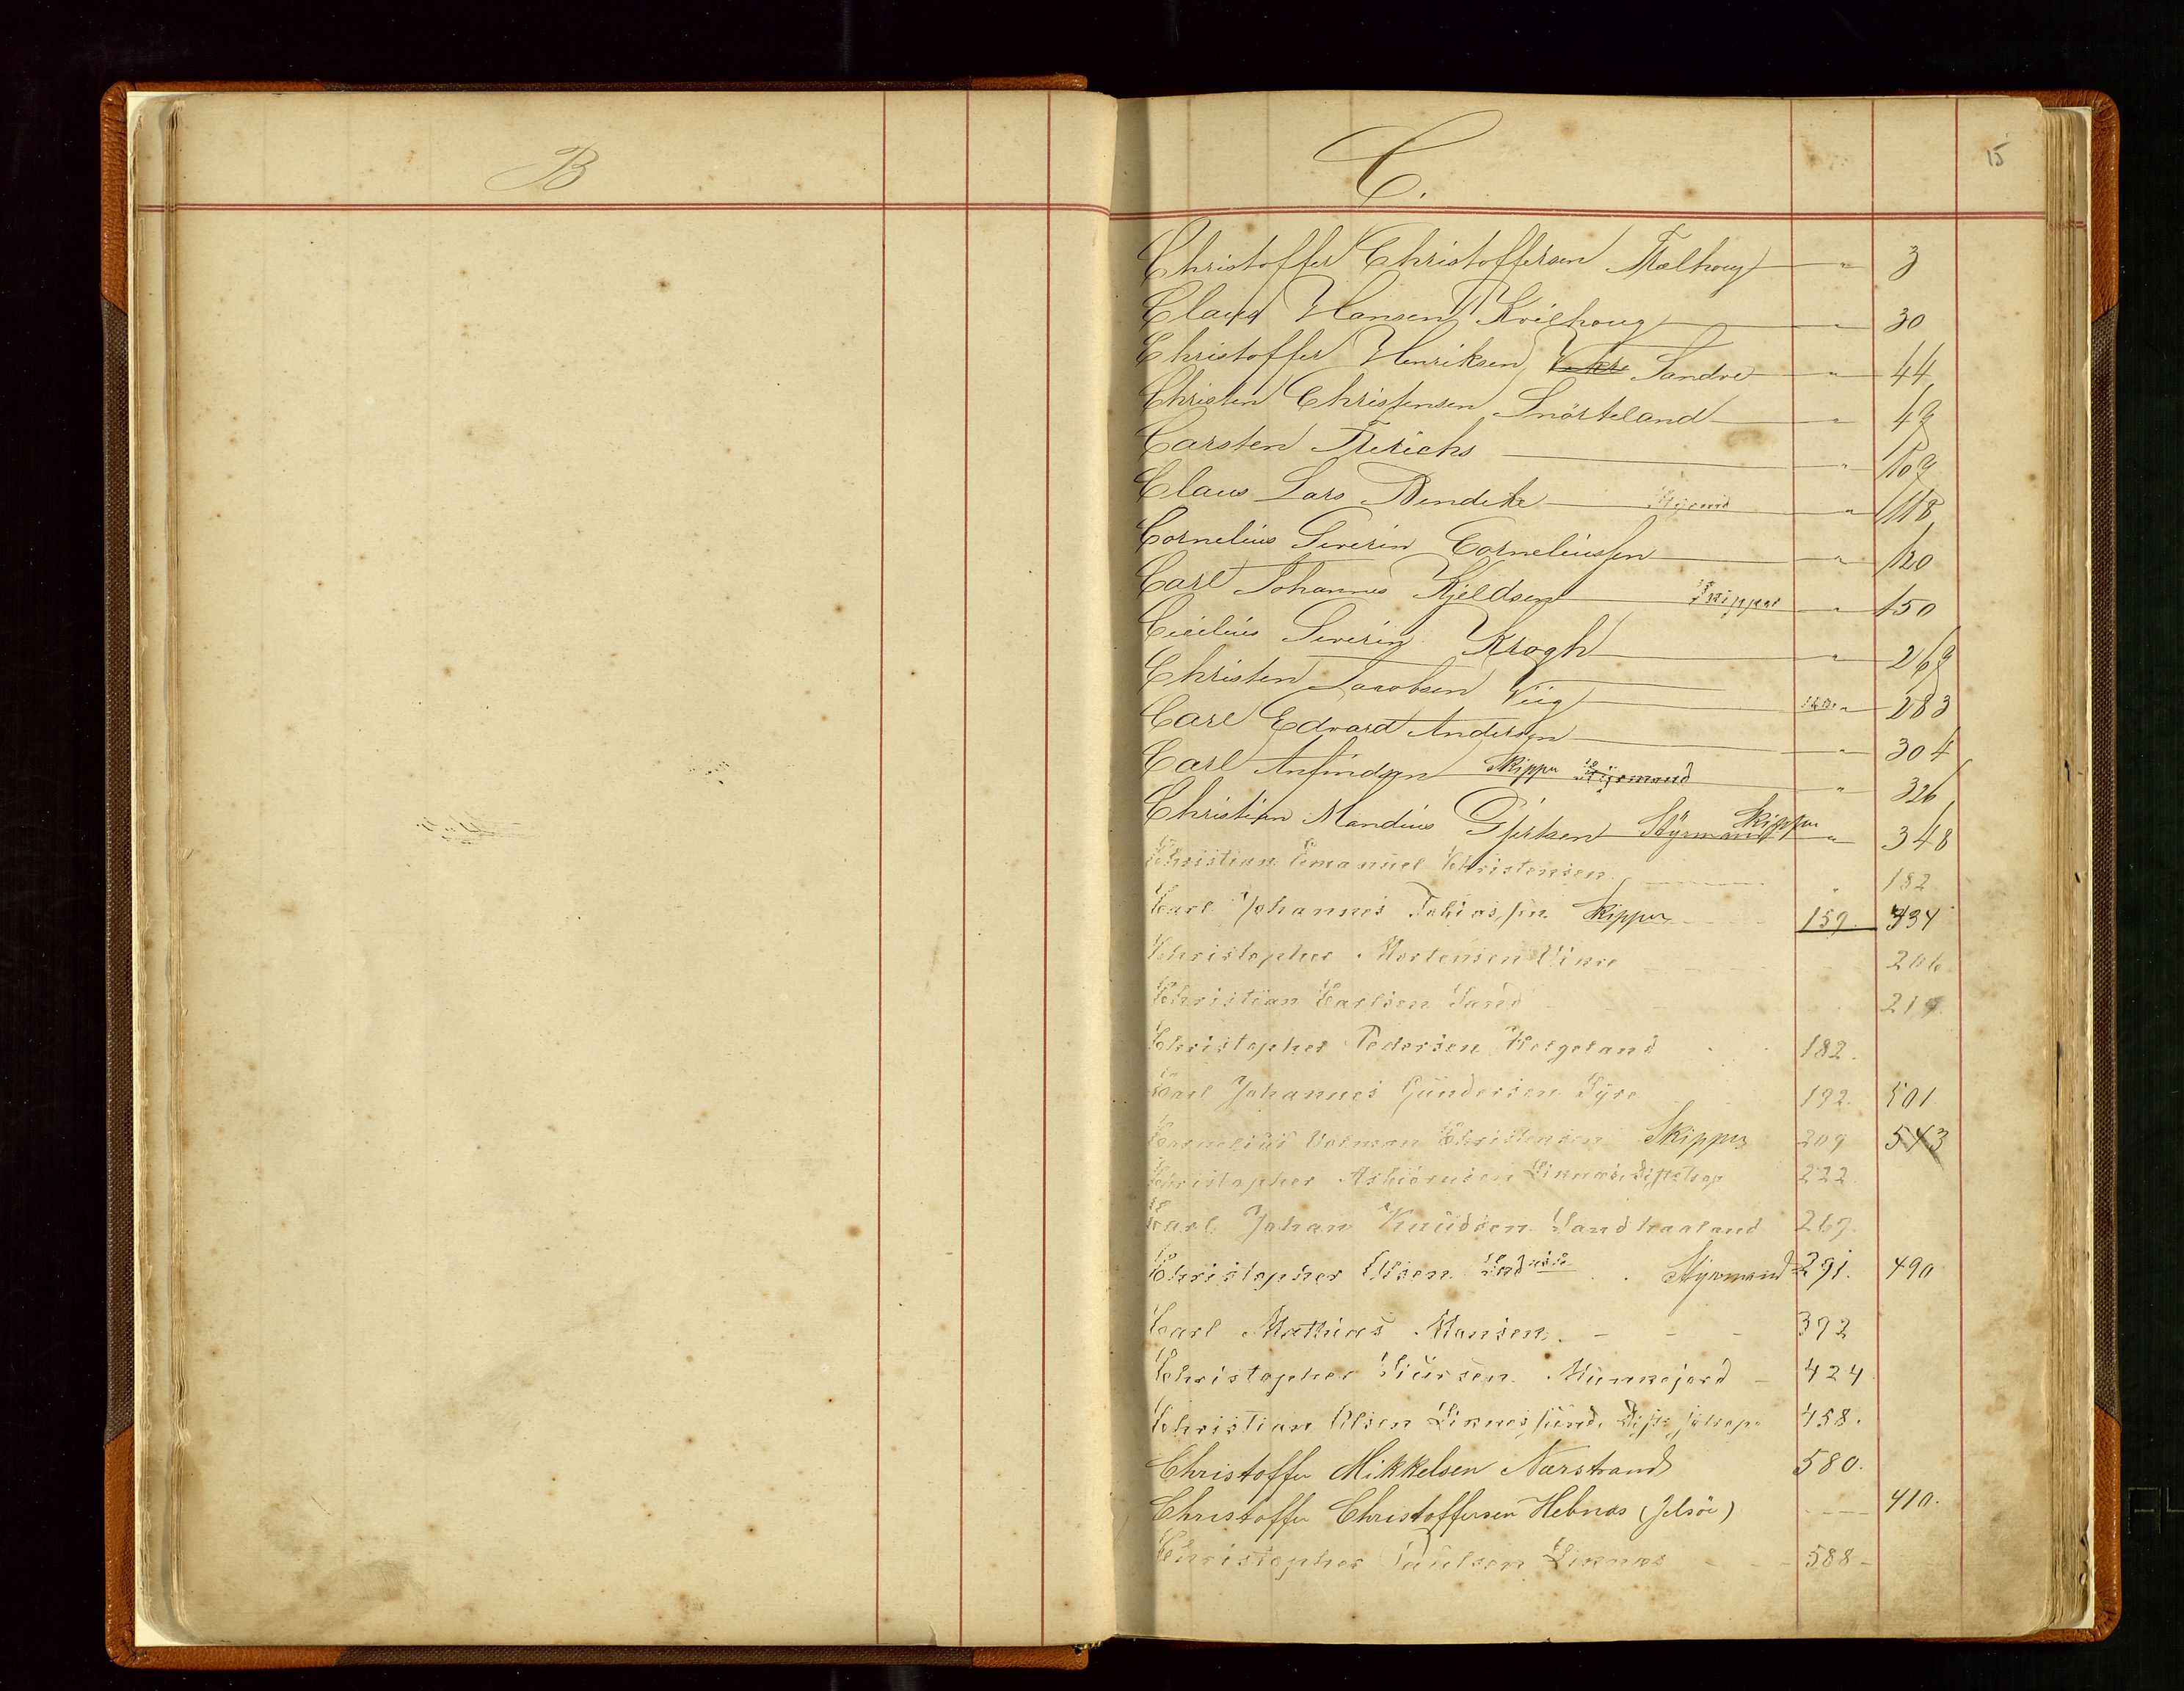 B
C.
15
Christoffer Christoffersen Trælhoug " 3
Claus Hansen Kvilhoug " 30
Christoffer Henriksen Vikre Sandve " 44
Christen Christensen Snörteland " 49
Carsten Frerichs " 109
Claus Lars Bendeke Styrmd " 118
Cornelius Severin Corneliussen " 120
Carl Johannes Kjeldsen Skipper " 150
Cicilius Severin Krogh " 269
Christen Jacobsen Viig " 283
Carl Edvard Andersen " 304
Carl Anfindsen Skipper Styrmand " 326
Christian Mandius Gjertsen Styrmand Skipper " 348
Christian Emanuel Christensen " 182
Carl Johannes Tobiassen Skipper 159. 434
Christopher Mortensen Vikre 206.
Christian Carlsen Sand 219.
Christopher Pedersen Helgeland 182.
Carl Johannes Gundersen Tyre 192. 501
Cornelius Christensen Skipper 209 543
Christopher Asbiørnsen 222
Carl Johan Knudsen Sandhaaland 267.
Christopher Olsen Styrmand 291. 490
Carl Mathias Hansen. - - - 392
Christopher Siursen Munnejord - 424
Christian Olsen 458.
Christoffer Mikkelsen Nærstrand 580.
Christoffer Christoffersen Hebnæs (Jelsöe) 410.
Christopher Paulsen 588-